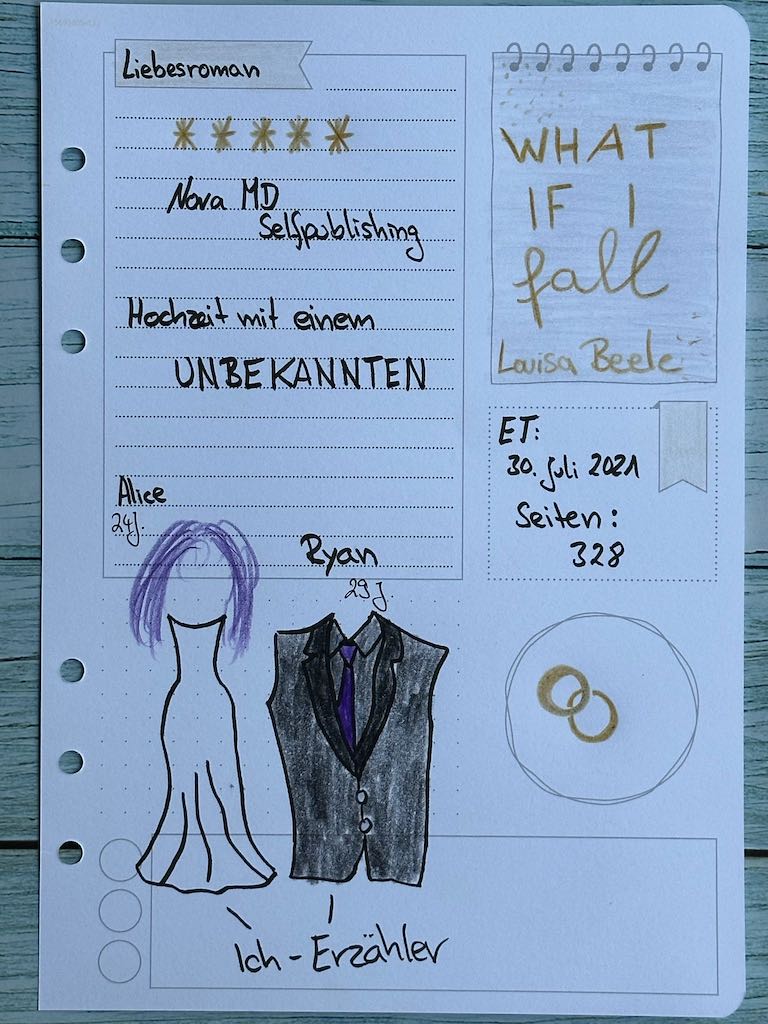 Liebesroman
Nova MD
Selfpublishing
Hochzeit mit einem
UNBEKANNTEN
Alice
24J.
Ryan
29 J.
Ich - Erzähler
WHAT
IF I
fall
Louisa Beele
ET:
30. Juli 2021
Seiten:
328